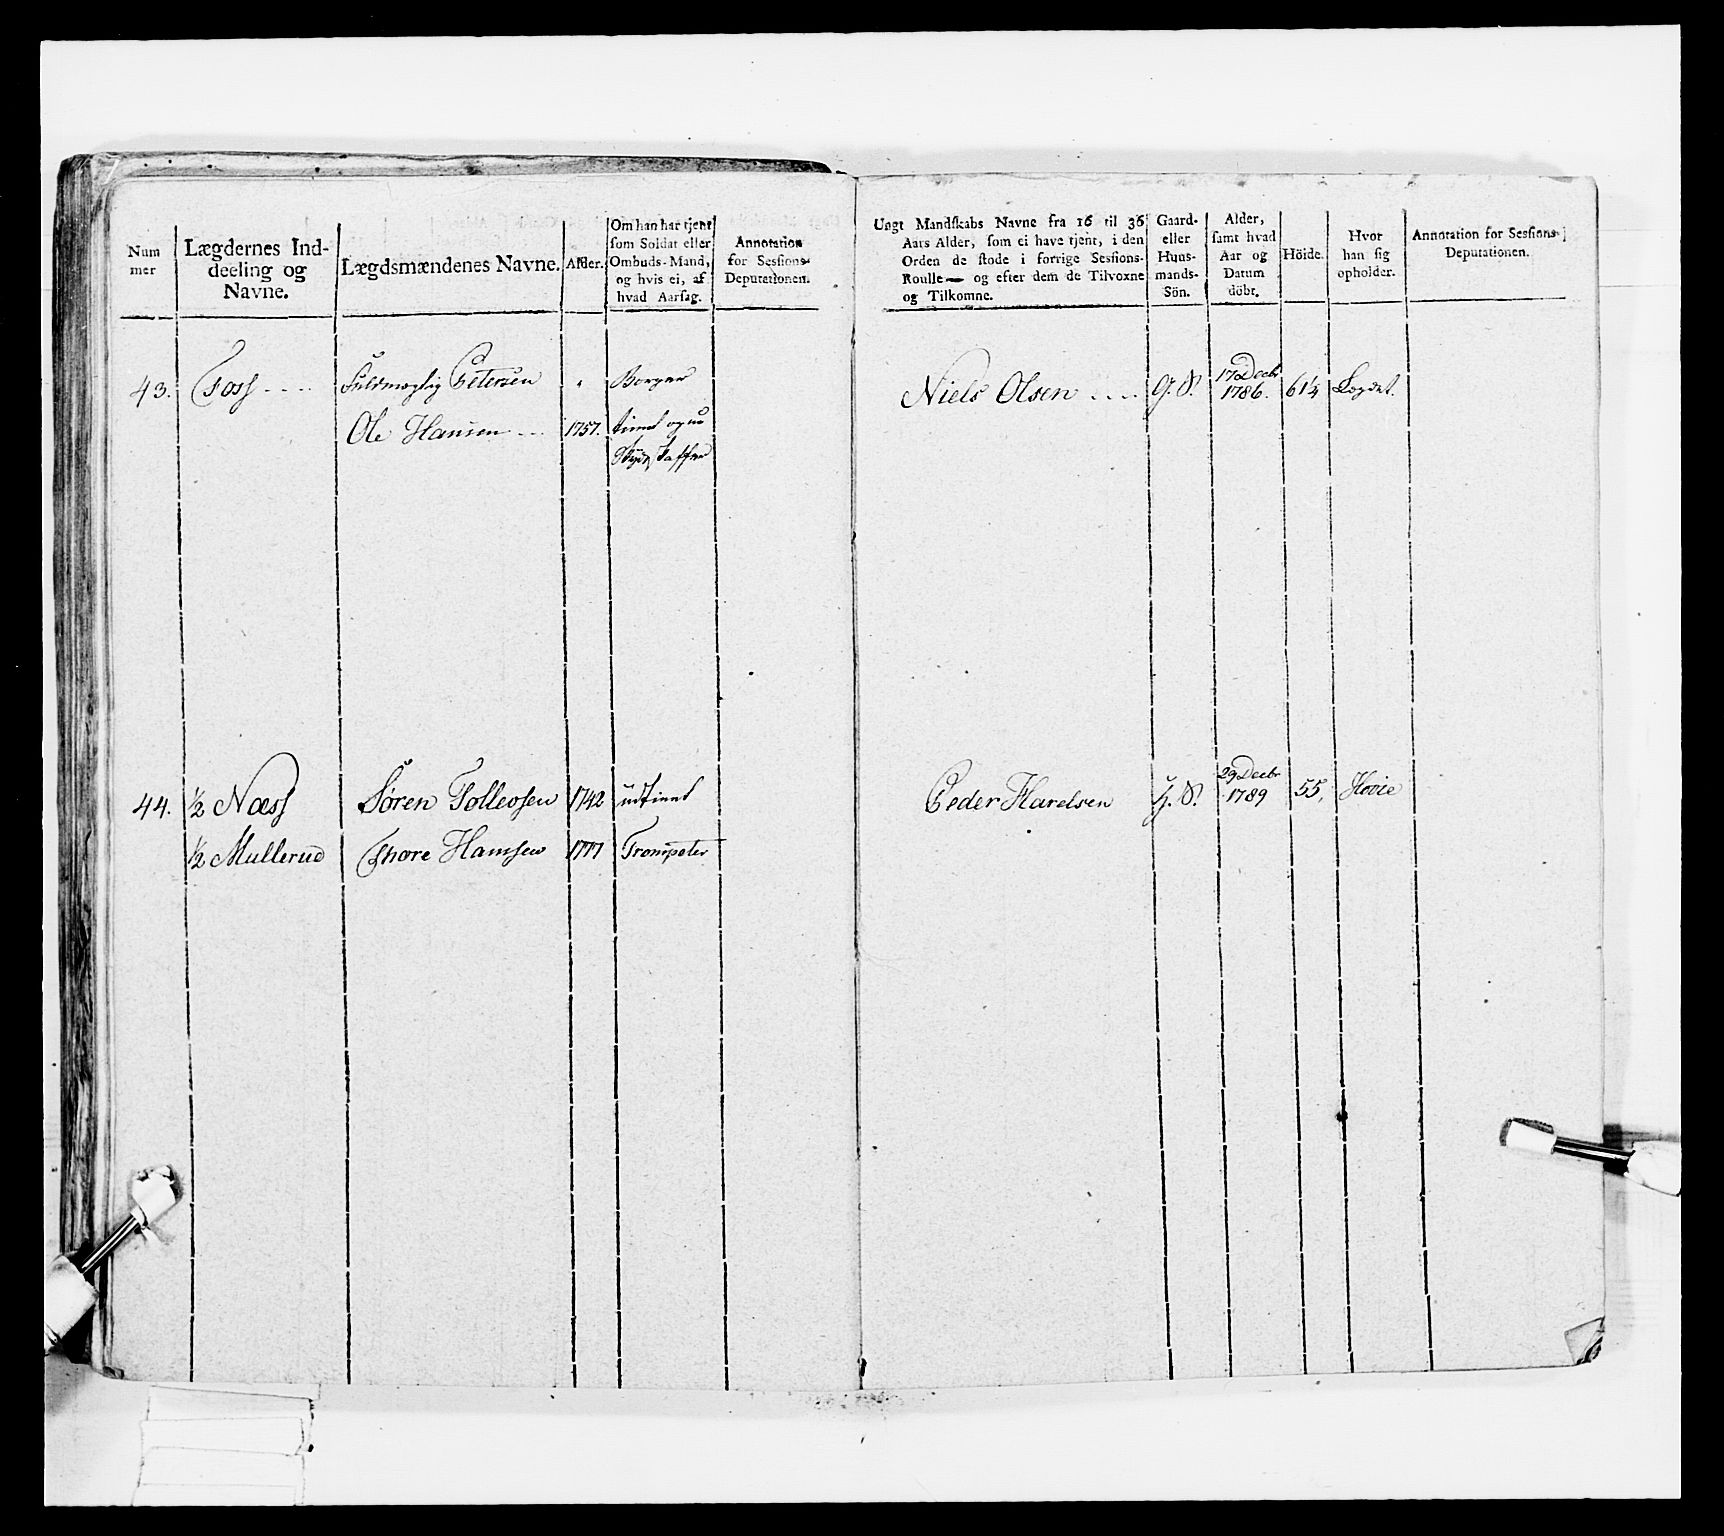 Num
mer
Lægdernes Ind-
deeling og
Navne.
Lægdsmændenes Navne.
Alder.
Om han har tjent
som Soldat eller
Ombuds-Mand,
og hvis ei, af
hvad Aarsag.
Annotation
for Sessions-
Deputationen.
Ungt Mandskabs Navne fra 16 til 36
Aars Alder, som ei have tjent, i den
Orden de stode i forrige Sessions-
Roulle — og efter dem de Tilvoxne
og Tilkomne.
Gaard-
eller
Huus-
mands-
Sön.
Alder,
samt hvad
Aar og
Datum
döbt.
Höide.
Hvor
han sig
opholder.
Annotation for Sessions-
Deputationen.
43. Foss Petersen Borger
Ole Hansen 1757. tient og nu
Niels Olsen G. S. 17 Decbr 1786. 61¼ Lægdet.
44. ½ Næss Sören Tollevsen 1742 udtient
½ Mullerud Thore Hansen 1777 Trompeter
Peder Harelsen G. S. 29 Decbr 1789 55, Hovie